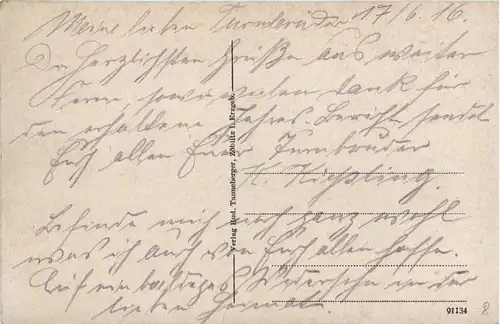 Meine lieben Turnbrüder 17/6.16.
Die herzlichsten Grüße aus weiter
Ferne, sowie vielen Dank für
den erhaltenen Jahres-Bericht sendet
Euch allen Euer Turnbruder
K.
Befinde mich noch ganz wohl
was ich auch von Euch allen hoffe.
Auf ein baldiges Wiedersehn in der
lieben Heimat.
Verlag Rud. Tanneberger, Zöblitz i. Erzgeb.
91134